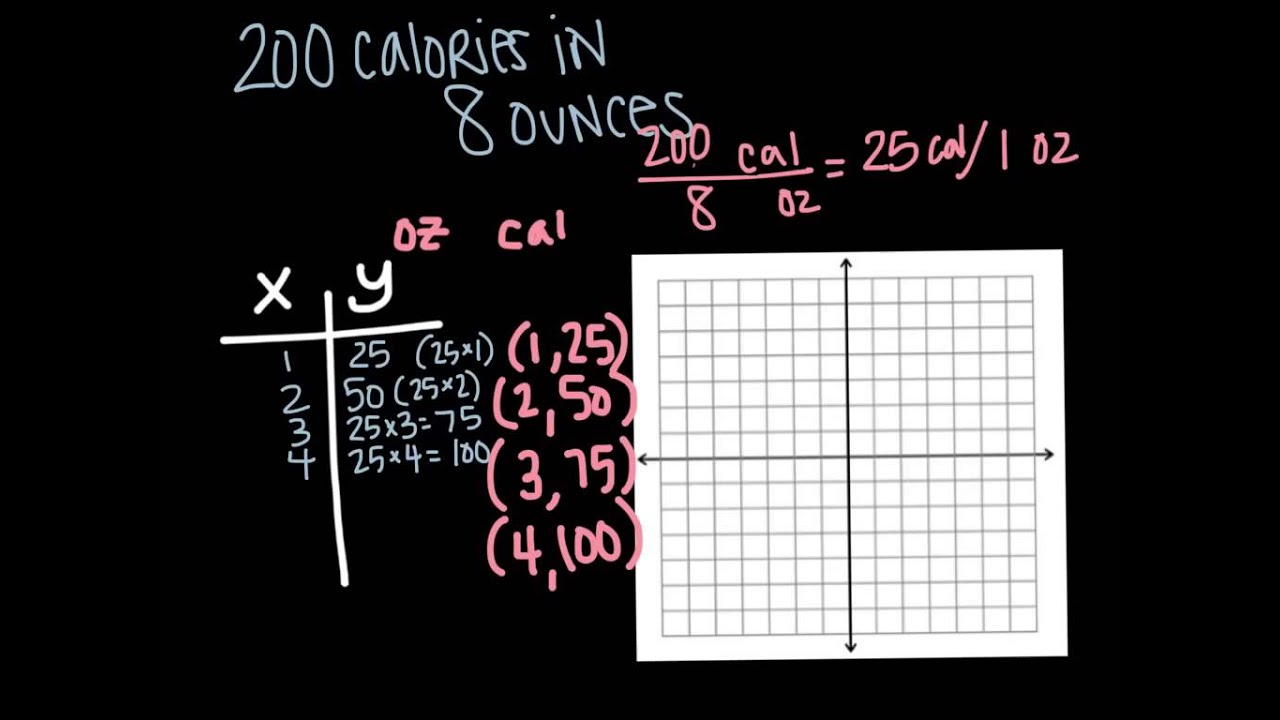 200 calories in
8 ounces
200 cal
8 oz
= 25 cal/1 oz
oz cal
x y
1 25 (25×1) (1,25)
2 50 (25×2) (2,50)
3 25×3=75 (3,75)
4 25×4=100 (4,100)